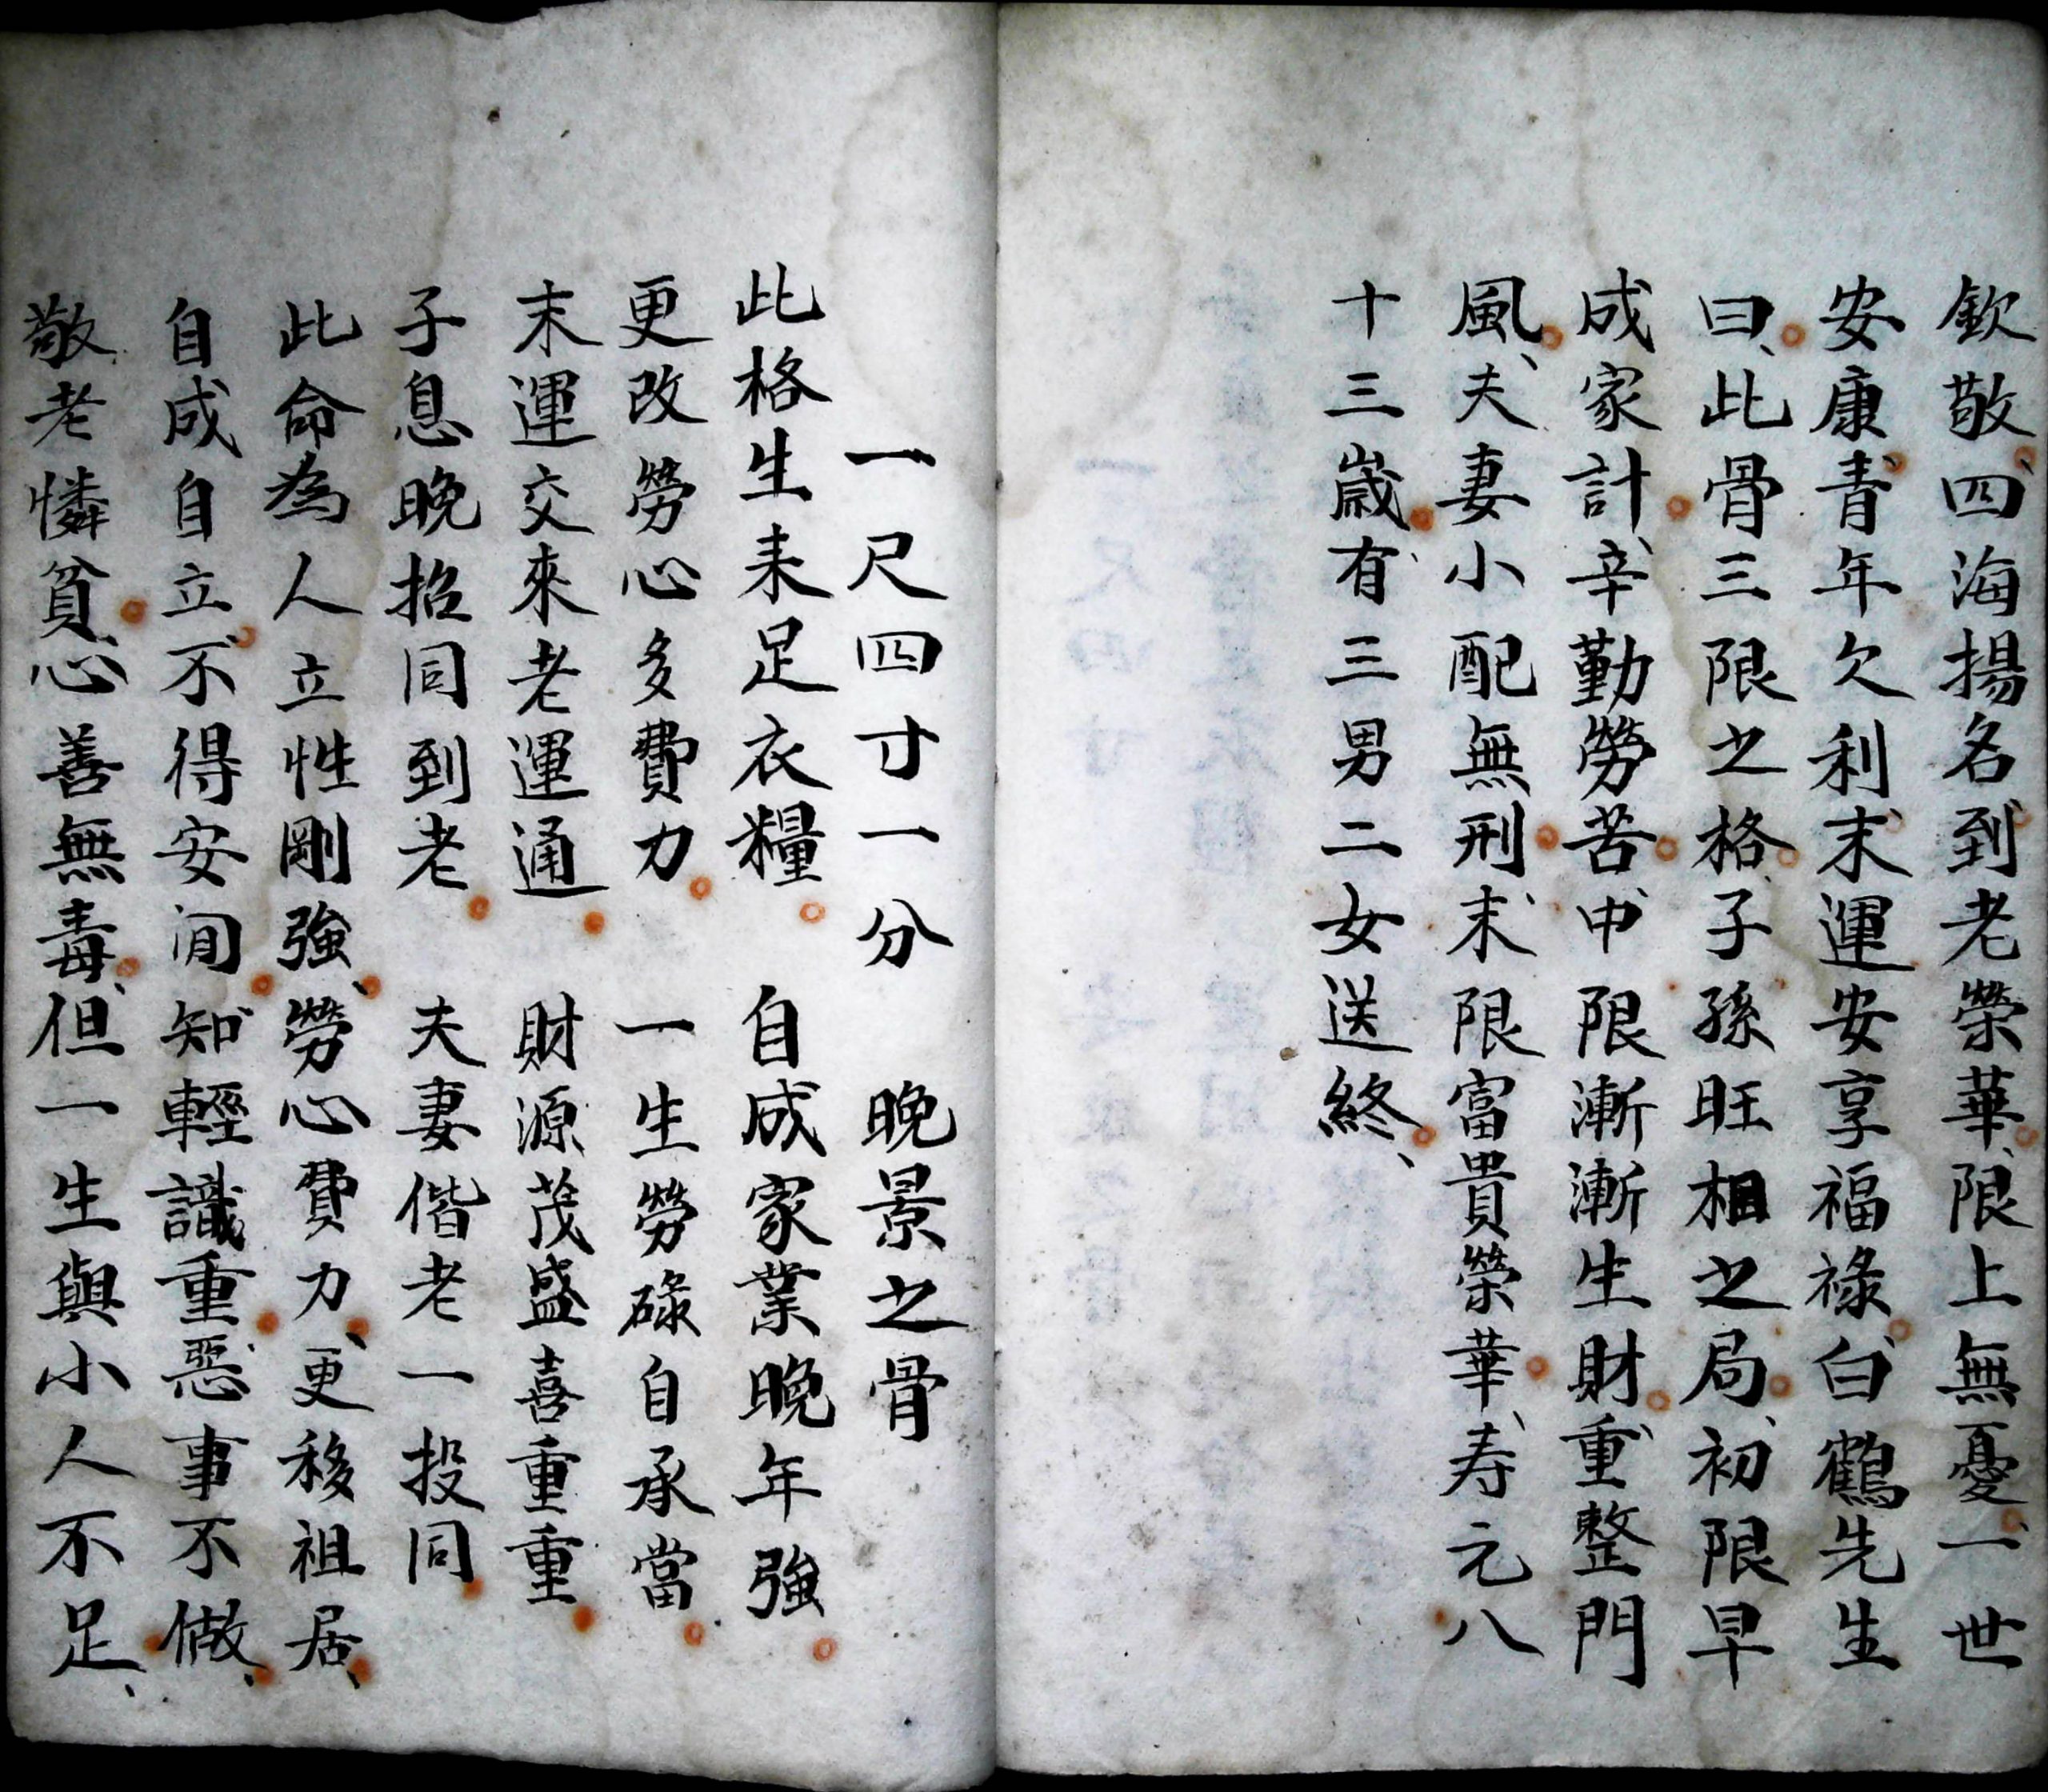 欽敬、四海揚名、到老榮華、限上無憂、一世
安康、青年欠利、末運安享福祿、白鶴先生
曰、此骨三限之格、子孫旺相之局、初限早
成家計、辛勤勞苦、中限漸漸生財、重整門
風、夫妻小配無刑、末限富貴榮華、寿元八
十三歲、有三男二女送終、
一尺四寸一分　晚景之骨
此格生来足衣糧　自成家業晚年強
更改勞心多費力　一生勞碌自承當
末運交來老運通　財源茂盛喜重重
子息晚招同到老　夫妻偕老一投同
此命為人立性剛強、勞心費力、更移祖居、
自成自立、不得安閒、知輕識重、惡事不做、
敬老憐貧、心善無毒、但一生與小人不足、